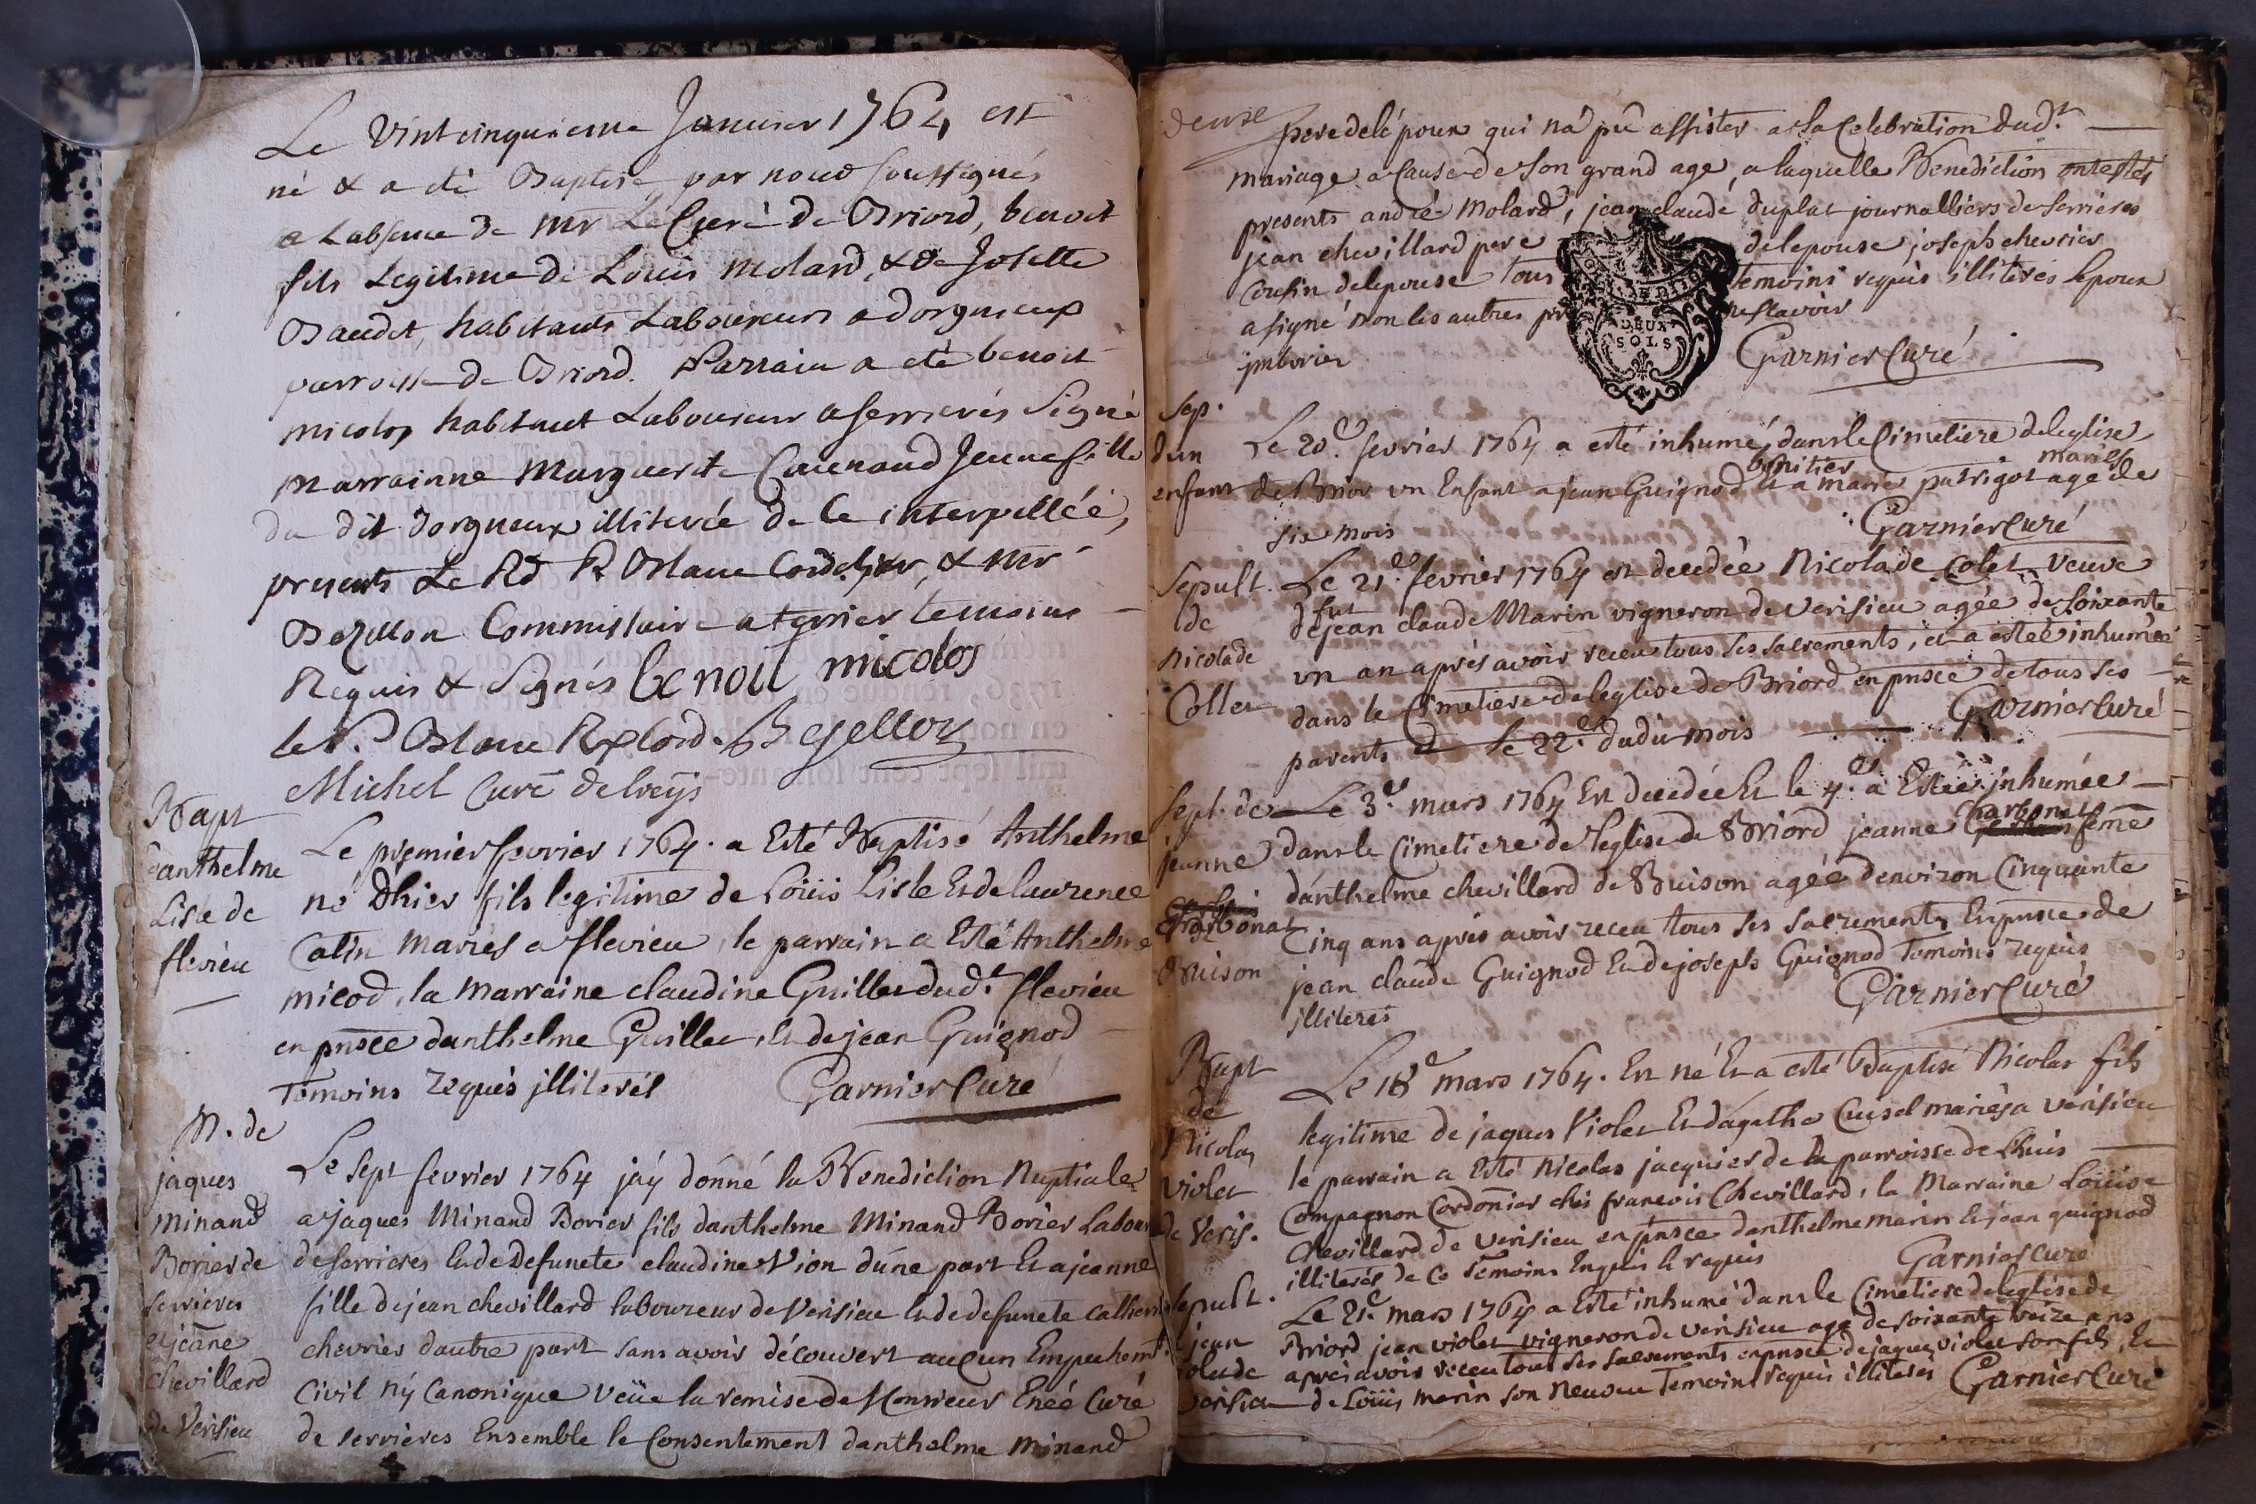 Le vintcinquieme Janvier 1764 est
né & a eté Baptisé par nous soussignés
a Labsence de Mr Le Curé de Briord, benoit
fils Legitime de Louis Molard, & de Josette
Baudet, habitants Laboureurs a dorgneux
parroisse de Briord. Parrain a eté benoit
micolos habitant Laboureur a serrierés Signé
Marrainne Marguerite Jeune fille
du dit dorgneux illiterée de Ce interpellée,
presents Le Rd P. Cordelier, & Mr
Commissaire a terrier temoins
Requis & Signés benoit micolos
le P. Begellon
Michel curé de
Bapt
danthelme
Lisle de
flevieu
Le premier fevrier 1764. a Esté Baptisé Anthelme
né Dhier fils legitime de Loüis Lisle Et de laurence
Catin mariés a flevieu, le parrain a Esté Anthelme
micod, la marraine claudine Guillet dud.t flevieu
en pnsce danthelme Guillet, Et de jean Guignod
Temoins requis jlliterés Garnier Curé
M. de
jaques
minand
Borier de
serrieres
et jeanne
chevillard
de Verisieu
Le sept fevrier 1764 jaÿ donné la Benediction Nuptiale
a jaques Minand Borier fils danthelme Minand Borier Labour
de serrieres Et de Defuncte claudine Vion dune part Et a jeanne
fille de jean chevillard laboureur de Verisieu Et de defuncte catherine
chevrier dautre part sans avoir découvert aucun Empechemt.
Civil nÿ Canonique Veüe la remise de Monsieur Enée Curé
de serrieres Ensemble le Consentement danthelme minand
pere delépoux qui na pu assister a la Celebration dud.t
mariage a Cause de son grand age, a laquelle Benediction ont estés
presents andré Molard, jean claude duplat journalliers de serrieres
jean chevillard pere delepouse joseph chevrier
Cousin delepouse tous temoins requis illiterés lepoux
a signé non les autres
jmborier Garnier Curé
DEUX
SOLS
Sep.
dun
enfant
Le 20.e fevrier 1764 a esté inhumé dans le Cimetiere deleglise
de Brior un Enfant a jean Guignod Et a marie patrigot mariés agé de
six mois Garnier Curé
Sepult.
de
Nicolade
Collet
Le 21.e fevrier 1764 est decedée Nicolade Colet veuve
de fut jean claude Marin vigneron de Verisieu agée de soixante
un an aprés avoir receu tous ses sacrements, et a estée inhumée
dans le Cimetiere deleglise de Briord en pnsce de tous ses
parents le 22.e dudit mois Garnier Curé
Sept. de
jeanne
Charbonat
Buison
Le 3.e mars 1764 Est decedée Et le 4.e a Estée inhumée
dans le Cimetiere de leglise de Briord jeanne Charbonat feme
danthelme chevillard de Buison agée denviron Cinquante
Cinq ans aprés avoir receu tous ses sacrements En pnsce de
jean claude Guignod Et de joseph Guignod Temoins requis
jlliterés Garnier Curé
Bapt
de
Nicolas
violet
de Veris.
Le 18.e mars 1764. Est né Et a esté Baptisé Nicolas fils
legitime de jaques Violet Et dagathe Cusel mariés a Vérisieu
le parrain a Esté Nicolas jacquier de la parroisse de Lhuis
Compagnon Cordonier chés francois Chevillard, la Marraine Loüise
Chevillard de Verisieu en pnsce danthelme marin Et jean guignod
illiterés de Ce Temoins Enquis Et requis Garnier Curé
sepult.
jean
violet de
verisieu
Le 21.e mars 1764 a Esté inhumé dans le Cimetiere deleglise de
Briord jean violet vigneron de verisieu agé de soixante treize ans
aprés avoir receu tous ses sacrements en pnsce de jaques violet son fils, Et
de Loüis marin son neuveu Temoins requis illiterés Garnier Curé